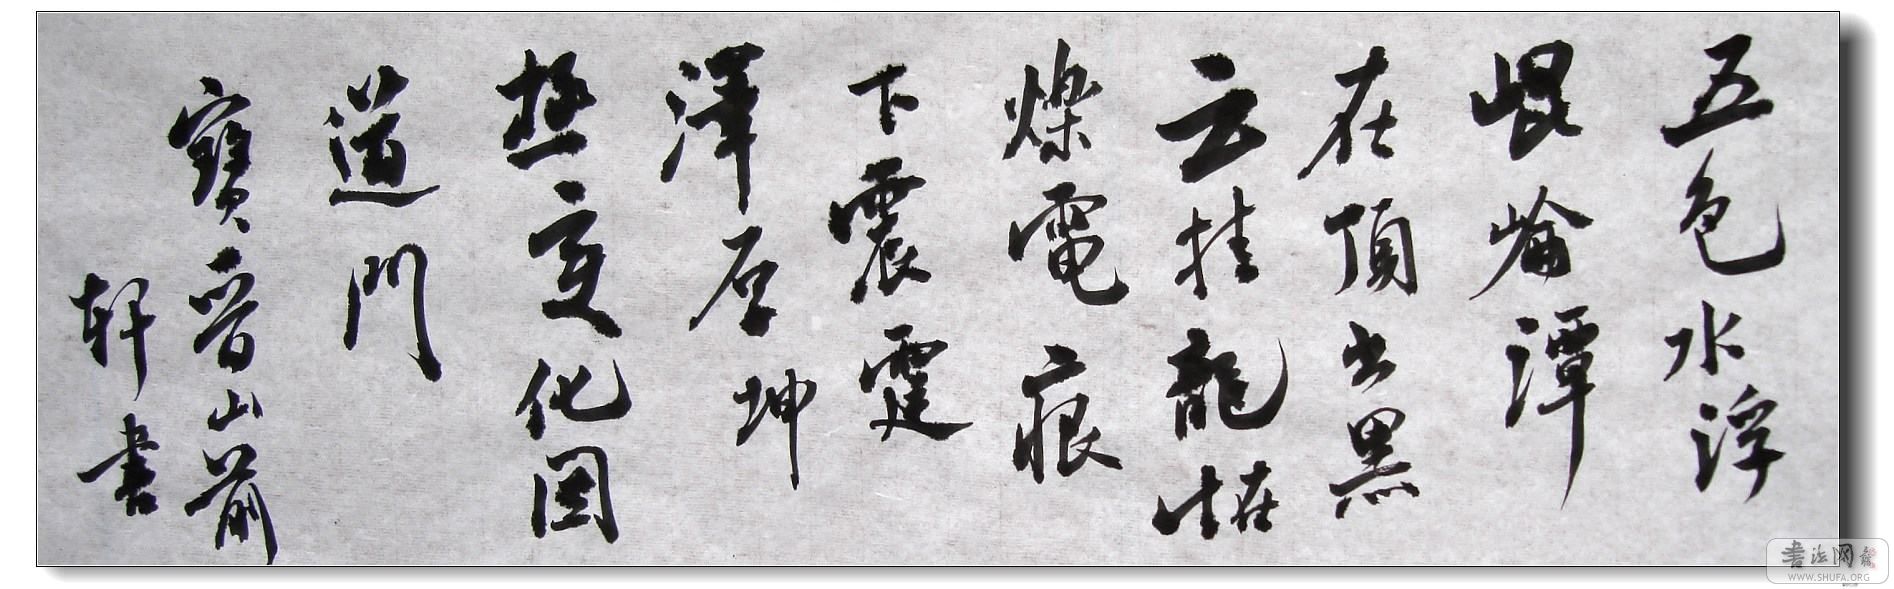 五色水浮
崐崘潭
在頂出黑
云挂龍恠
爍電痕
下震霆
澤厚坤
極变化
道門
寶晉山前
軒書
書法网
WWW.SHUFA.ORG